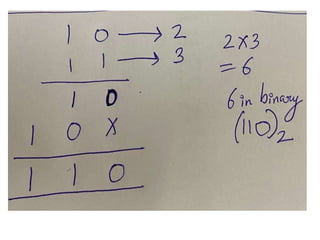 1 0 → 2
1 1 → 3
1 0
1 0 X
1 1 0
2 X 3
= 6
6 in binary
(110)2